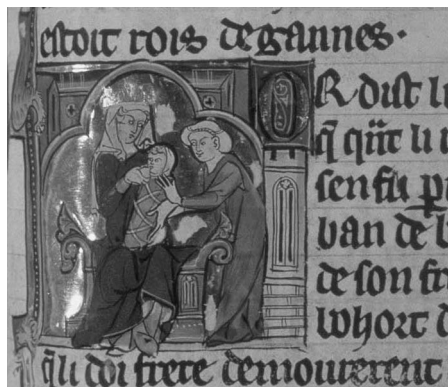 estoit rois de gannes.
OR dist li
q̄ qn̄t li
sen fu
ban de
de son fre
bohort d
q̄ li doi frere demourerent